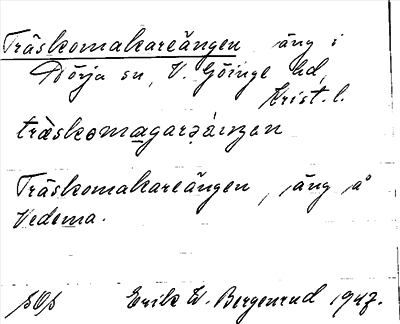 Träskomakareängen äng i
Dörja sn, V. Göinge hd,
Krist. l.
träskomagarəäŋən
Träskomakareängen, äng å
Vedema.
sOs Erik W. Bergenrud 1947.